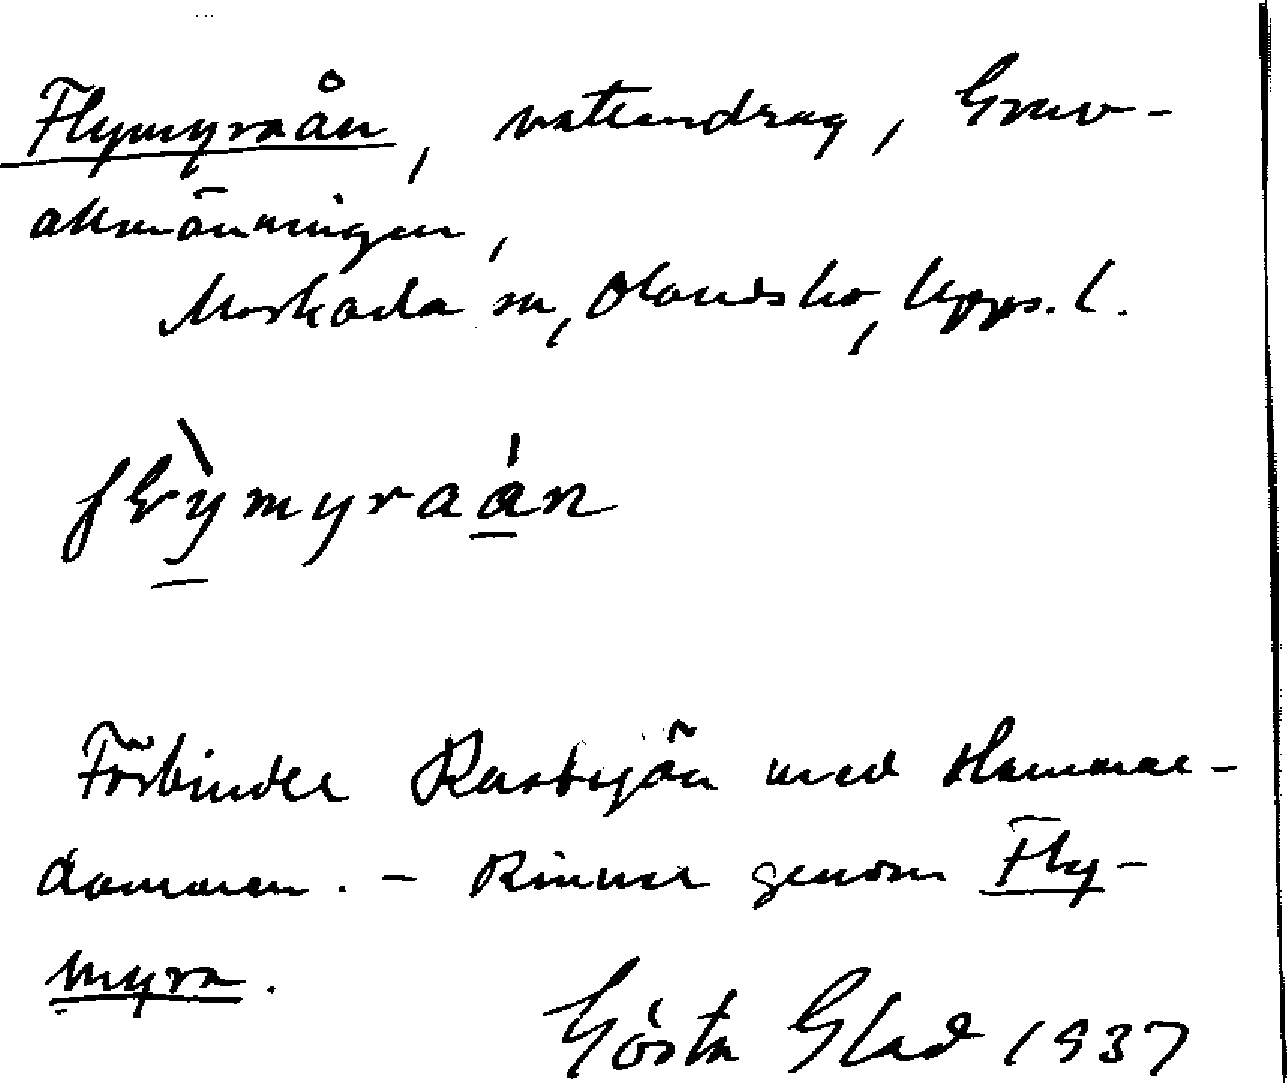 Flymyraån, vattendrag, Gruv-
allmänningen,
Morkarla sn, Olands hd, Upps. l.
flỳmyraán
Förbinder Rastsjön med Hammar-
dammen. - Rinner genom Fly-
myra.
Gösta Glad 1937